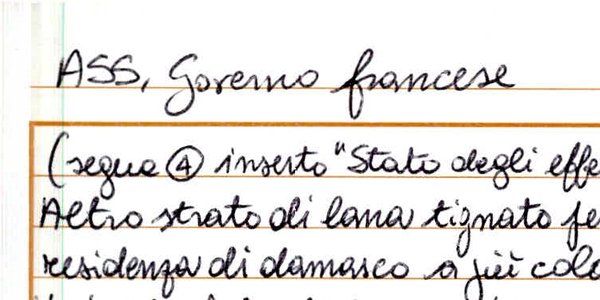 ASS, Governo francese
(segue ④ inserto "Stato degli effe
Altro strato di lana tignato fe
residenza di damasco a più colo